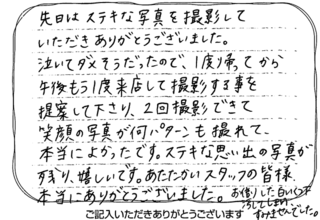 先日はステキな写真を撮影して
いただきありがとうございました。
泣いてダメそうだったので、1度帰ってから
午後もう1度来店して撮影する事を
提案して下さり、2回撮影できて
笑顔の写真が何パターンも撮れて、
本当によかったです。ステキな思い出の写真が
残り、嬉しいです。あたたかいスタッフの皆様、
本当にありがとうございました。お借りした白いくつ
汚してしまい、
すみませんでした。
ご記入いただきありがとうございます